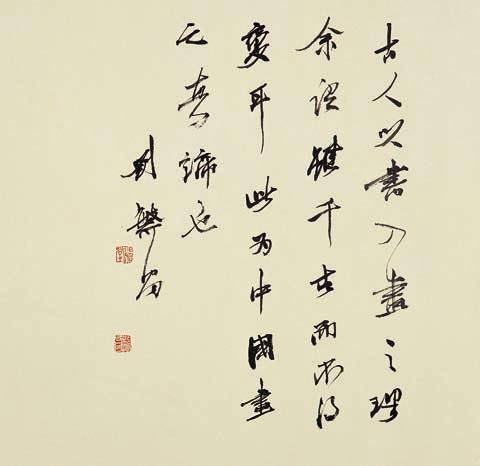 古人以書入畫之理
余雖千古而不得
變耳此為中國畫
之真諦也
劉